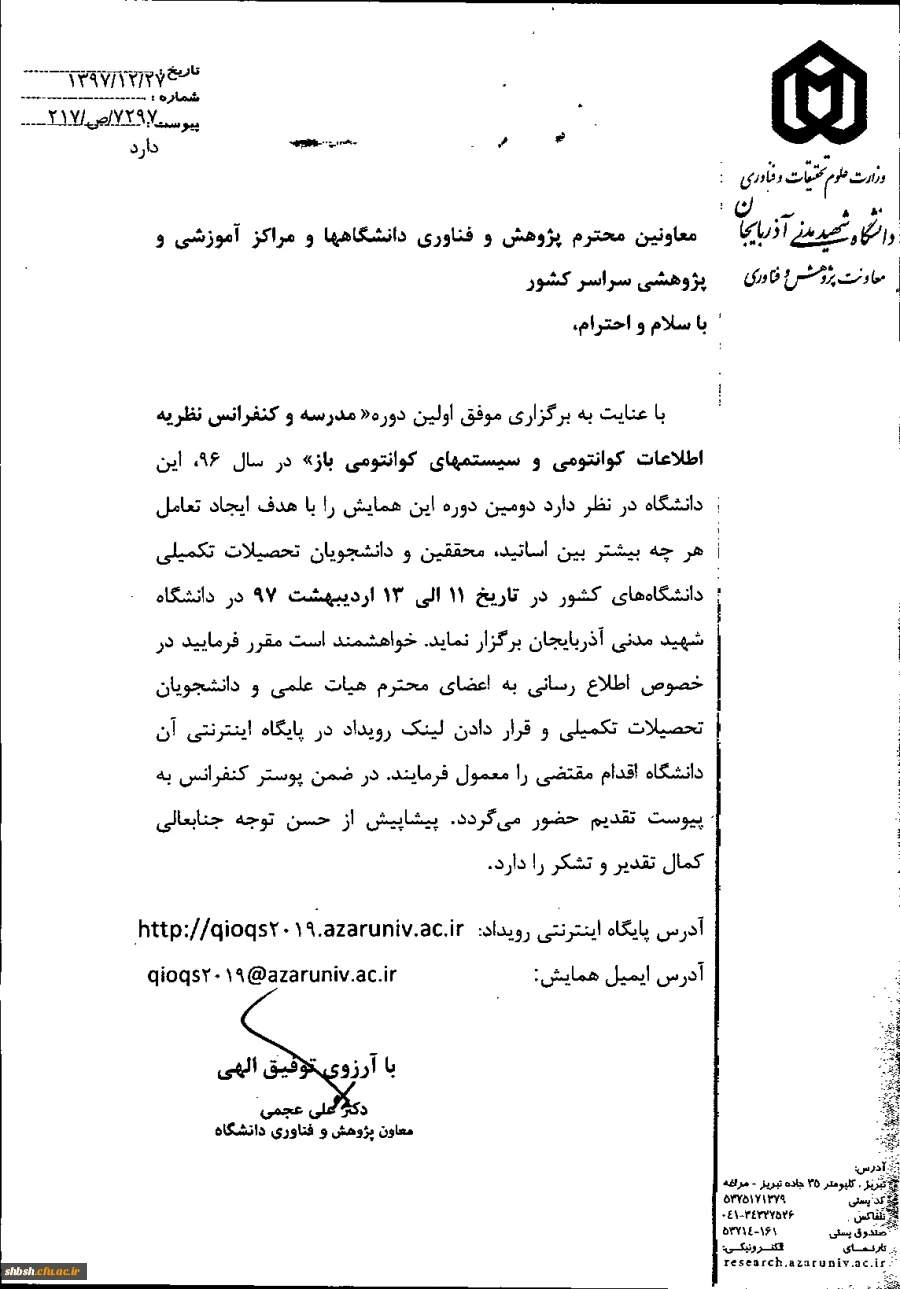 تاریخ: ۱۳۹۷/۱۲/۲۷
شماره:
پیوست: ۲۱۷/ص/۷۲۹۷
دارد
وزارت علوم تحقیقات و فناوری
دانشگاه شهید مدنی آذربایجان
معاونت پژوهش و فناوری
معاونین محترم پژوهش و فناوری دانشگاهها و مراکز آموزشی و
پژوهشی سراسر کشور
با سلام و احترام،
با عنایت به برگزاری موفق اولین دوره« مدرسه و کنفرانس نظریه
اطلاعات کوانتومی و سیستمهای کوانتومی باز» در سال ۹۶، این
دانشگاه در نظر دارد دومین دوره این همایش را با هدف ایجاد تعامل
هر چه بیشتر بین اساتید، محققین و دانشجویان تحصیلات تکمیلی
دانشگاه‌های کشور در تاریخ ۱۱ الی ۱۳ اردیبهشت ۹۷ در دانشگاه
شهید مدنی آذربایجان برگزار نماید. خواهشمند است مقرر فرمایید در
خصوص اطلاع رسانی به اعضای محترم هیات علمی و دانشجویان
تحصیلات تکمیلی و قرار دادن لینک رویداد در پایگاه اینترنتی آن
دانشگاه اقدام مقتضی را معمول فرمایند. در ضمن پوستر کنفرانس به
پیوست تقدیم حضور می‌گردد. پیشاپیش از حسن توجه جنابعالی
کمال تقدیر و تشکر را دارد.
آدرس پایگاه اینترنتی رویداد: http://qioqs۲۰۱۹.azaruniv.ac.ir
آدرس ایمیل همایش: qioqs۲۰۱۹@azaruniv.ac.ir
با آرزوی توفیق الهی
دکتر علی عجمی
معاون پژوهش و فناوری دانشگاه
آدرس:
تبریز، کیلومتر ۳۵ جاده تبریز - مراغه
کد پستی ۵۳۷۵۱۷۱۳۷۹
تلفاکس ۰۴۱-۳۴۳۲۷۵۲۶
صندوق پستی ۵۳۷۱٤-۱۶۱
تارنمـای الکترونیکی:
research.azaruniv.ac.ir
shbsh.cfu.ac.ir